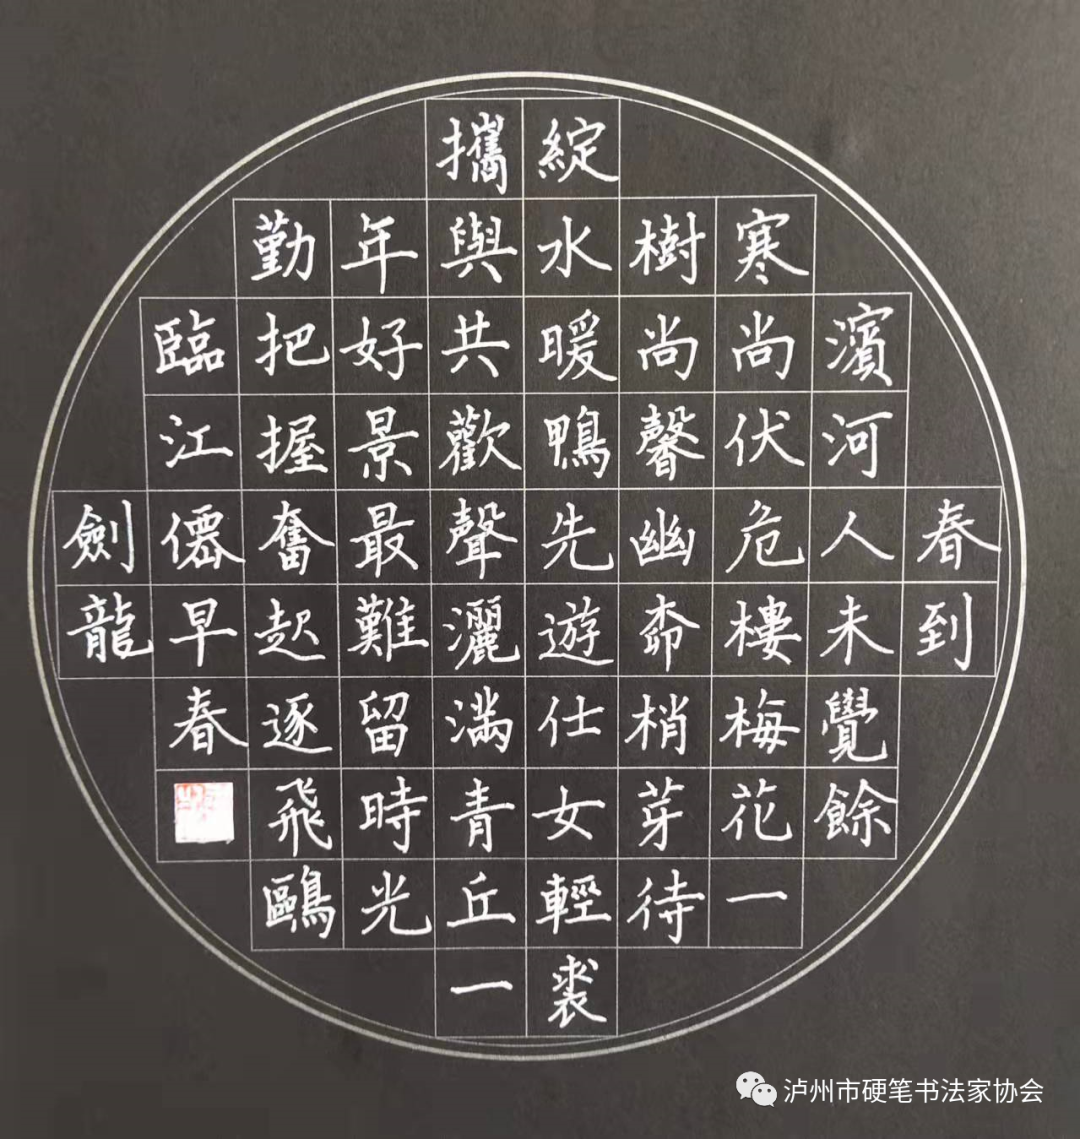 春到
濱河人未覺餘
寒尚伏危樓梅花一
樹尚馨幽柳梢芽待
綻水暖鴨先遊仕女輕裘
攜與共歡聲灑滿青丘一
年好景最難留時光
勤把握奮起逐飛鷗
臨江僊早春
劍龍
泸州市硬笔书法家协会